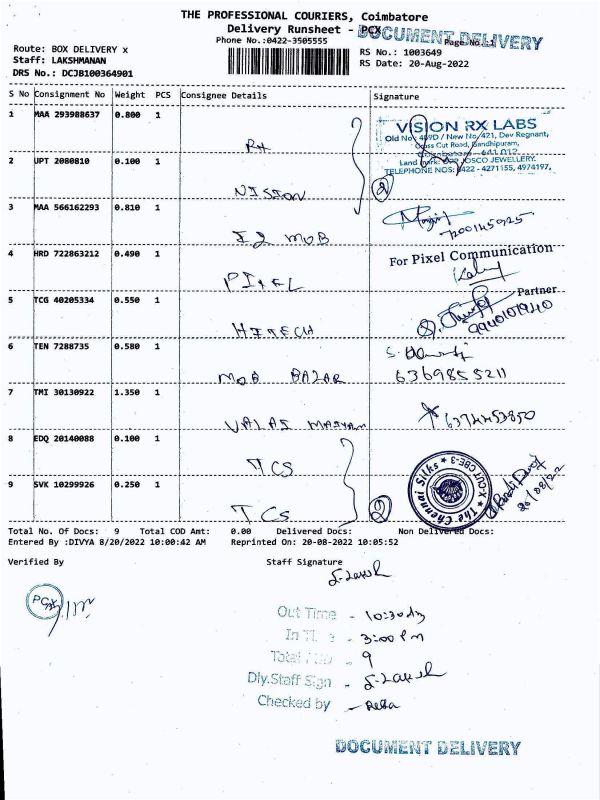 THE PROFESSIONAL COURIERS, Coimbatore
Delivery Runsheet - PCX
DOCUMENT DELIVERY
Phone No.:0422-3505555
Page No.:1
Route: BOX DELIVERY x
Staff: LAKSHMANAN
DRS No.: DCJB100364901
RS No.: 1003649
RS Date: 20-Aug-2022
S No Consignment No Weight PCS Consignee Details Signature
1 MAA 293988637 0.800 1
VISION RX LABS
Old No 489D / New No.421, Dev Regnant,
Cross Cut Road, Gandhipuram,
Coimbatore - 641 012
Land mark: JOSCO JEWELLERY.
TELEPHONE NOS: 0422 - 4271155, 4974197,
RX
2 UPT 2080810 0.100 1
NISSION
2
3 MAA 566162293 0.810 1
I2 MOB
7200145925
4 HRD 722863212 0.490 1
For Pixel Communication
PIXEL
Partner
5 TCG 40205334 0.550 1
HITECH
9940101940
6 TEN 7288735 0.580 1
MOB BAZAR
6369855211
7 TMI 30130922 1.350 1
VALAI MARYAM
6374453850
8 EDQ 20140088 0.100 1
TCS
The Chennai Silks * X-CUT CBE-3
9 SVK 10299926 0.250 1
TCS
2
20/08/22
Total No. Of Docs: 9 Total COD Amt: 0.00 Delivered Docs: Non Delivered Docs:
Entered By :DIVYA 8/20/2022 10:00:42 AM Reprinted On: 20-08-2022 10:05:52
Verified By
Staff Signature
PCX
Out Time - 10:30
In Ti - 3:00 PM
Total - 9
Dly.Staff Sign -
Checked by -
DOCUMENT DELIVERY